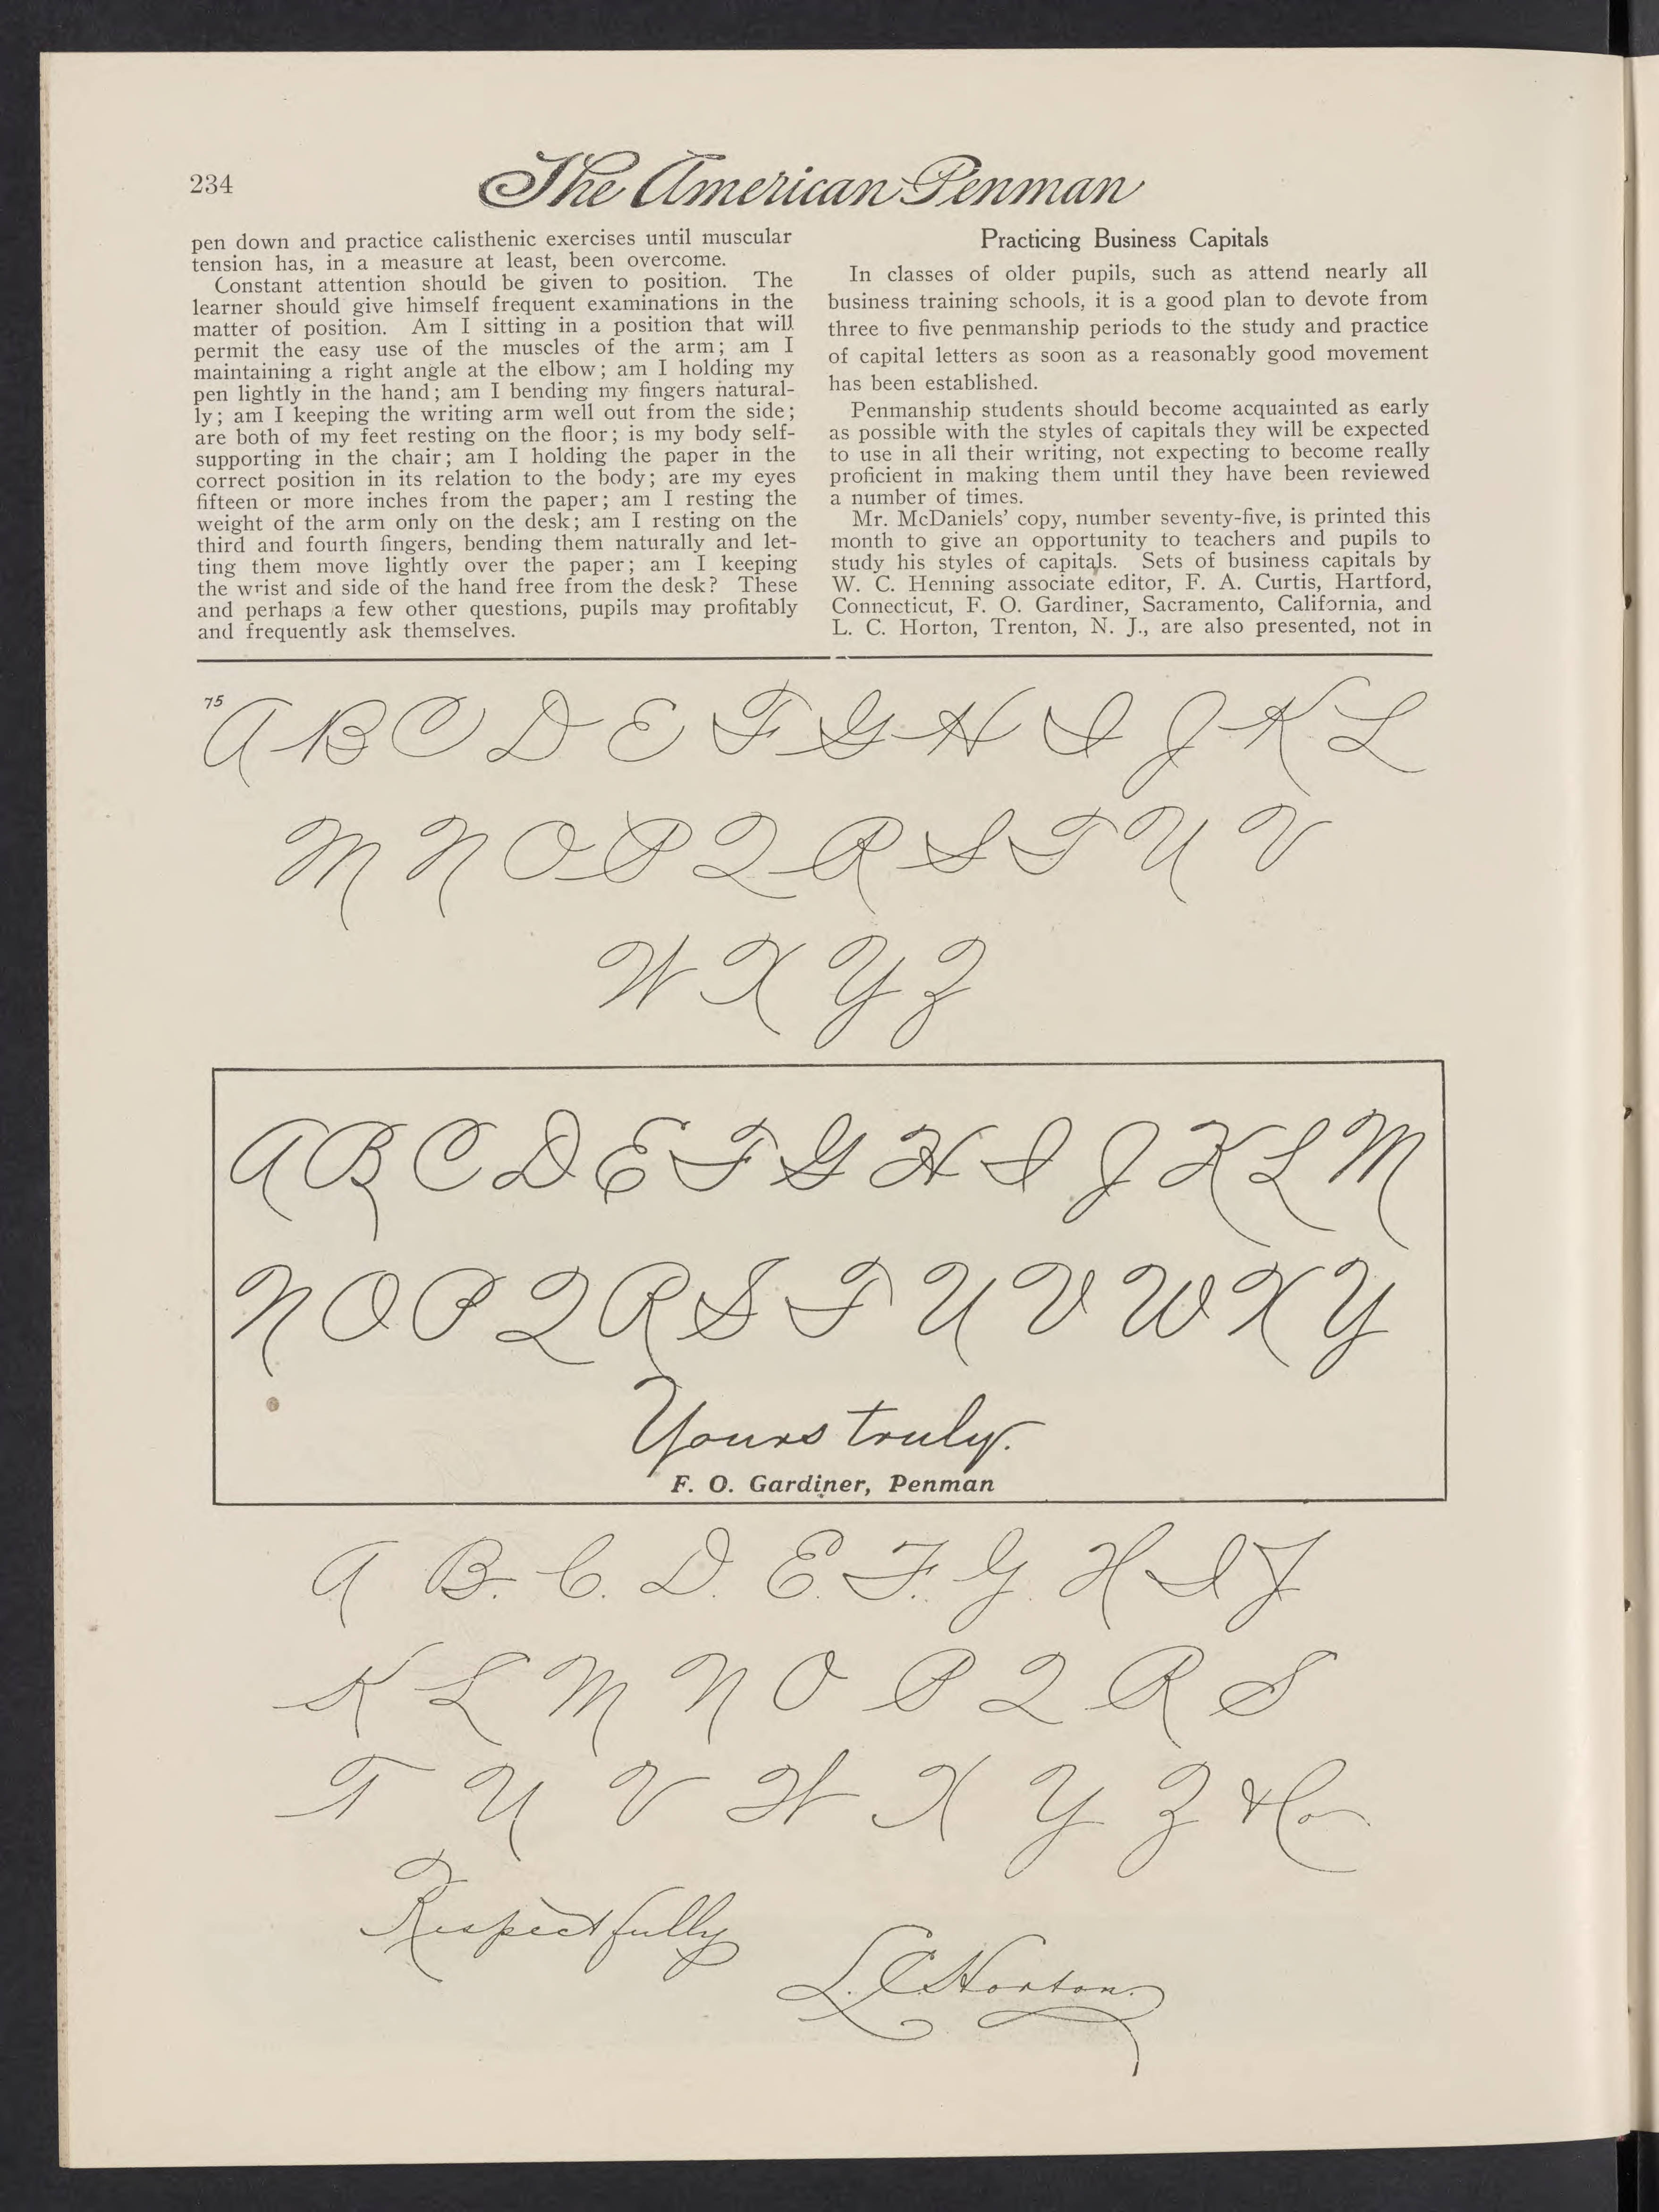 234
The American Penman
pen down and practice calisthenic exercises until muscular
tension has, in a measure at least, been overcome.
Constant attention should be given to position. The
learner should give himself frequent examinations in the
matter of position. Am I sitting in a position that will
permit the easy use of the muscles of the arm; am I
maintaining a right angle at the elbow; am I holding my
pen lightly in the hand; am I bending my fingers natural-
ly; am I keeping the writing arm well out from the side;
are both of my feet resting on the floor; is my body self-
supporting in the chair; am I holding the paper in the
correct position in its relation to the body; are my eyes
fifteen or more inches from the paper; am I resting the
weight of the arm only on the desk; am I resting on the
third and fourth fingers, bending them naturally and let-
ting them move lightly over the paper; am I keeping
the wrist and side of the hand free from the desk? These
and perhaps a few other questions, pupils may profitably
and frequently ask themselves.
Practicing Business Capitals
In classes of older pupils, such as attend nearly all
business training schools, it is a good plan to devote from
three to five penmanship periods to the study and practice
of capital letters as soon as a reasonably good movement
has been established.
Penmanship students should become acquainted as early
as possible with the styles of capitals they will be expected
to use in all their writing, not expecting to become really
proficient in making them until they have been reviewed
a number of times.
Mr. McDaniels' copy, number seventy-five, is printed this
month to give an opportunity to teachers and pupils to
study his styles of capitals. Sets of business capitals by
W. C. Henning associate editor, F. A. Curtis, Hartford,
Connecticut, F. O. Gardiner, Sacramento, California, and
L. C. Horton, Trenton, N. J., are also presented, not in
75
A B C D E F G H I J K L
M N O P Q R S T U V
W X Y Z
A B C D E F G H I J K L M
N O P Q R S T U V W X Y
Yours truly.
F. O. Gardiner, Penman
A B. C. D. E. F. G. H I J
K L M N O P Q R S
T U V W X Y Z & Co
Respectfully
L. C. Horton.